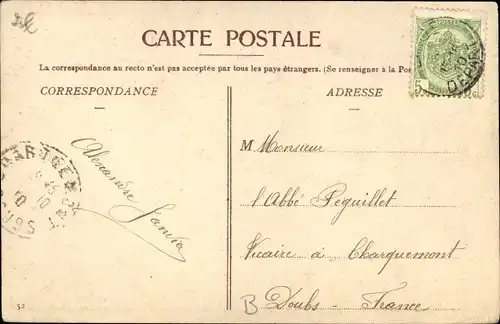 CARTE POSTALE
La correspondance au recto n'est pas acceptée par tous les pays étrangers. (Se renseigner à la Pos
CORRESPONDANCE
ADRESSE
5
DEPART
M Monsieur
l'Abbé Peguillet
Vicaire à Charquemont
B Doubs - France
Alexandre
DOUBS
52